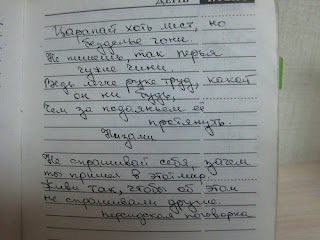 ДЕНЬ
Царапай хоть лист, но
безделье гони.
Не пишешь, так перья
чужие чини,
Ведь легче руке труд, какой
он ни будь,
Чем за подаяньем её
протянуть.
Низами
Не спрашивай себя, зачем
ты пришел в этот мир.
Живи так, чтобы об этом
не спрашивали другие.
Персидская поговорка